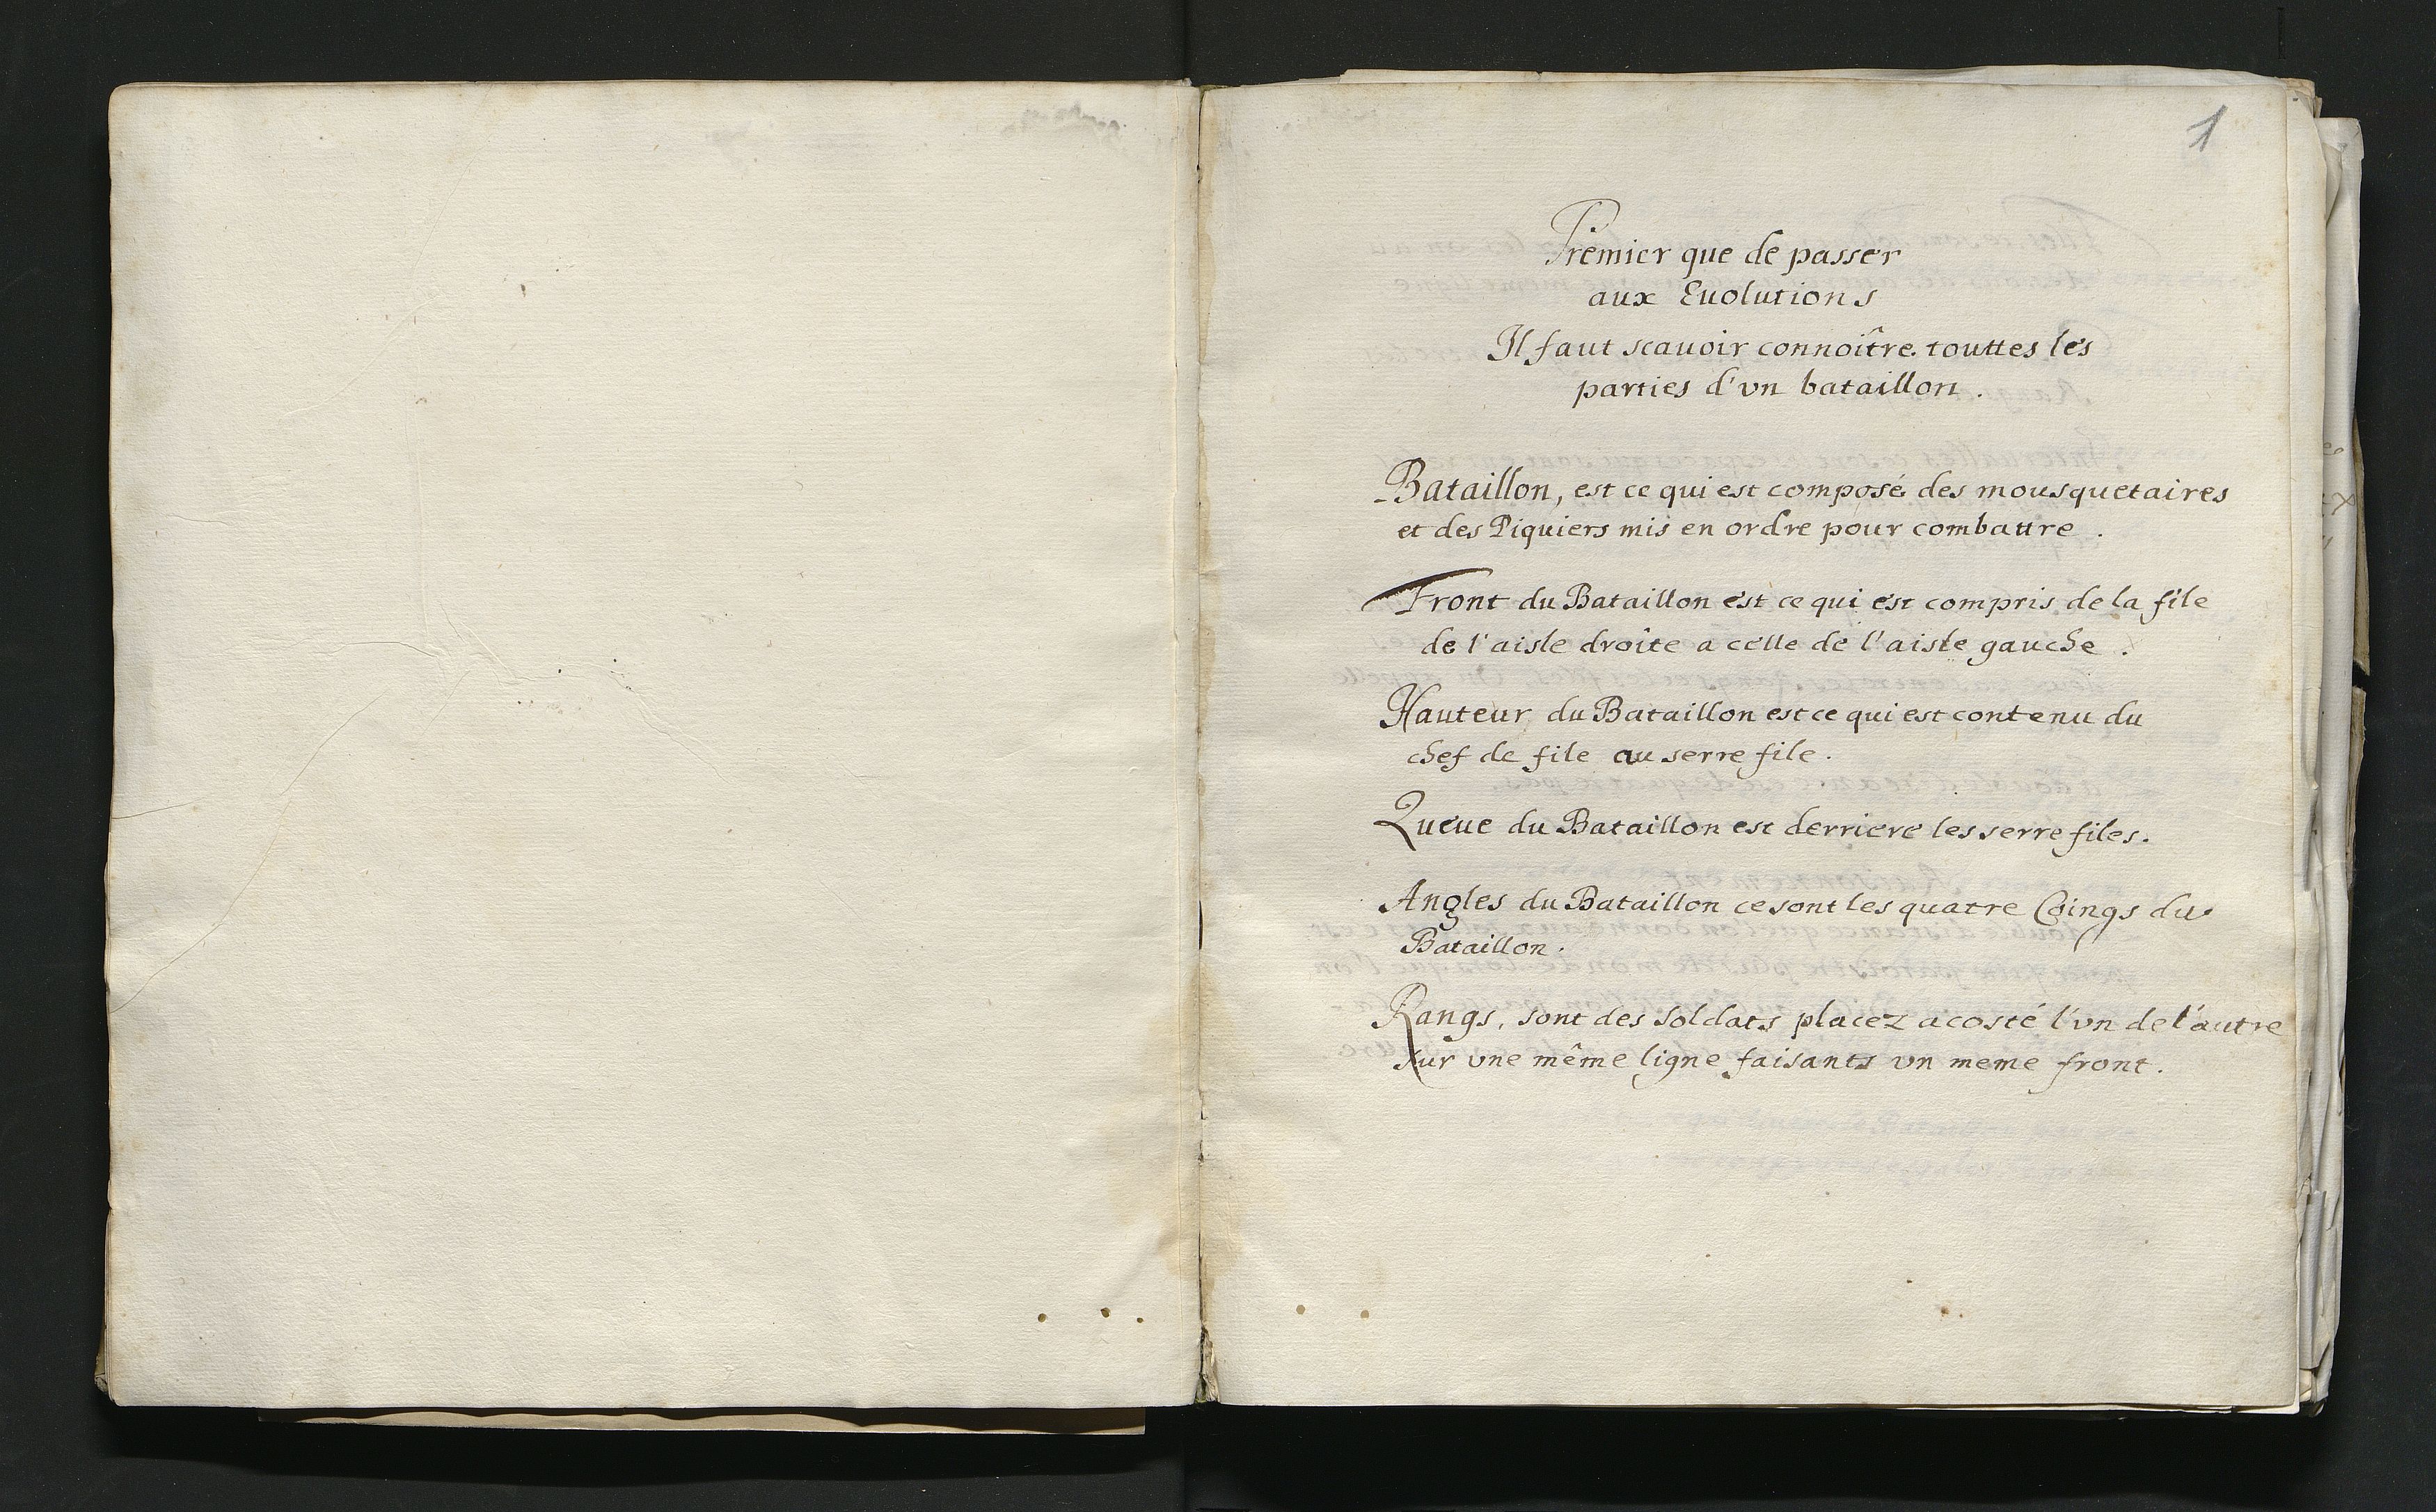 1
Premier que de passer
aux Euolutions
Il faut scauoir connoître touttes les
parties d'vn bataillon.
Bataillon, est ce qui est composé des mousquetaires
et des Piquiers mis en ordre pour combattre.
Front du Bataillon est ce qui est compris de la file
de l'aisle droîte a celle de l'aisle gauche.
Hauteur du Bataillon est ce qui est contenu du
chef de file au serre file.
Queue du Bataillon est derriere les serre files.
Angles du Bataillon ce sont les quatre Coings du
Bataillon.
Rangs, sont des soldats placez a costé l'vn de l'autre
sur vne même ligne faisants vn meme front.